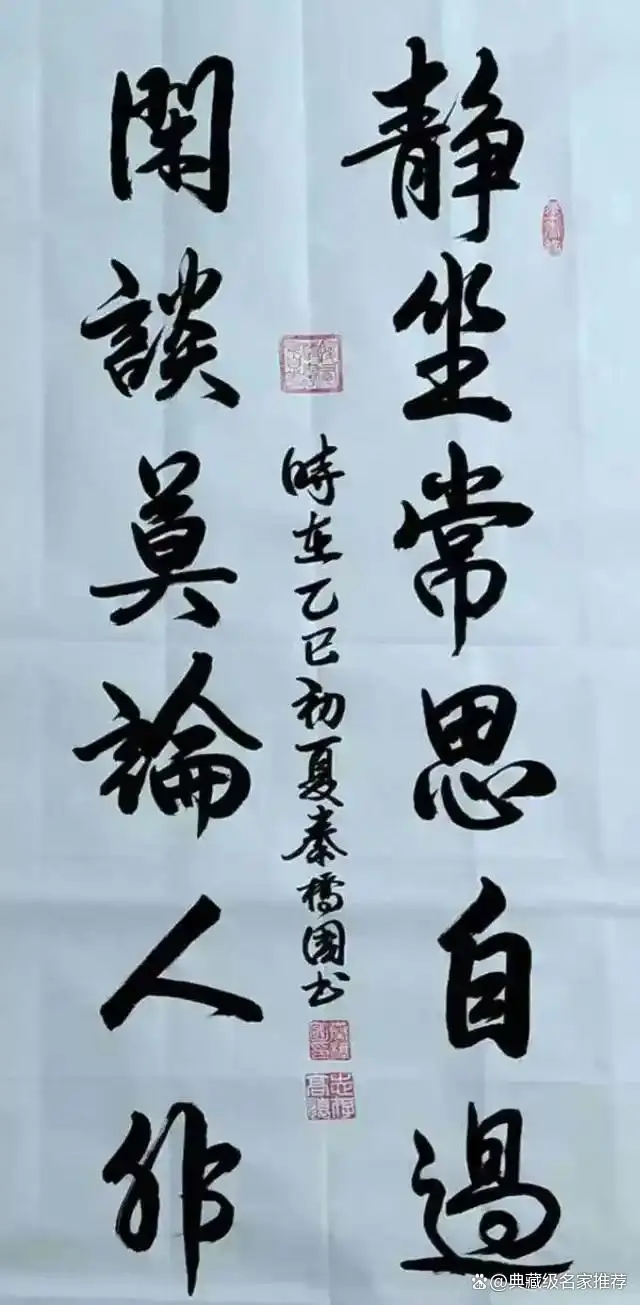 静坐常思自過
閑談莫論人非
時在乙巳初夏秦橋國书
@典藏级名家推荐